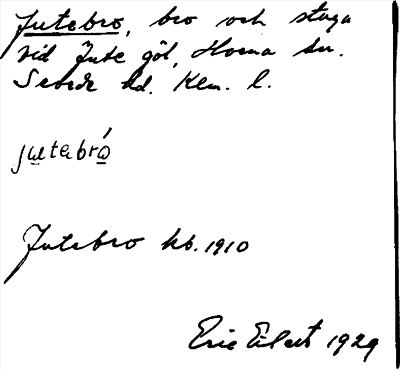 Jutebro, bro och stuga
vid Jute göl, Horna sn.
Sevede hd. Klm. l.
jutabró
Jutebro kb. 1910
Eric Eilert 1929